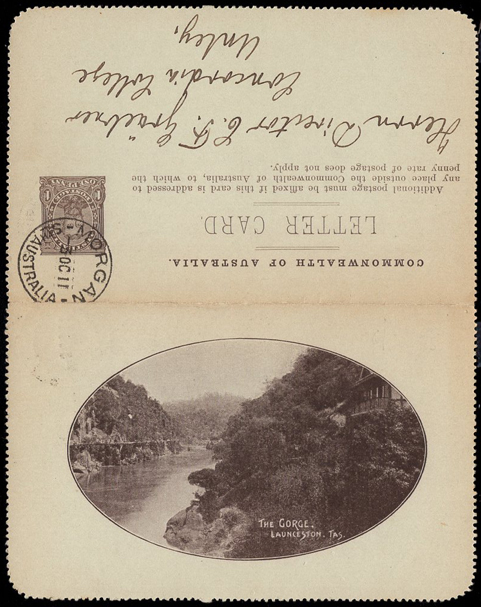 COMMONWEALTH OF AUSTRALIA.
LETTER CARD.
Additional postage must be affixed if this card is addressed to
any place outside the Commonwealth of Australia, to which the
penny rate of postage does not apply.
Herrn Director C. F. Graebner
Concordia College
Unley.
MORGAN
OC 11
AUSTRALIA
THE GORGE.
LAUNCESTON. TAS.